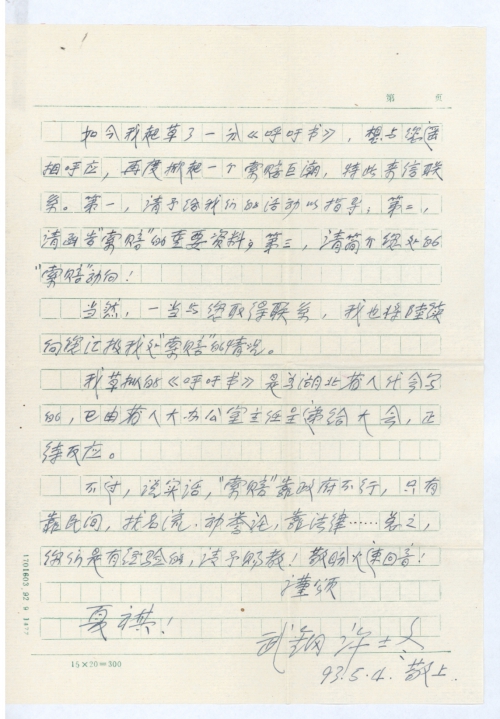 1
第 页
如今我起草了一分《呼吁书》,想与您遥
相呼应,再度掀起一个索赔巨潮,特此来信联
系。第一,请予给我们的活动以指导;第二,
请函告"索赔"的重要资料;第三,请简介您处的
"索赔"动向!
当然,一当与您取得联系,我也将陆续
向您汇报我处"索赔"的情况。
我草拟的《呼吁书》是为湖北省人代会写
的,已由省人大办公室主任呈递给大会,正
待反应。
不过,说实话,"索赔"靠政府不行,只有
靠民间,找名流,动舆论,靠法律……总之,
你们是有经验的,请予赐教!敬盼火速回音!
谨颂
夏祺!
武钢 许
93.5.4. 敬上
15×20=300
1701603.92.9